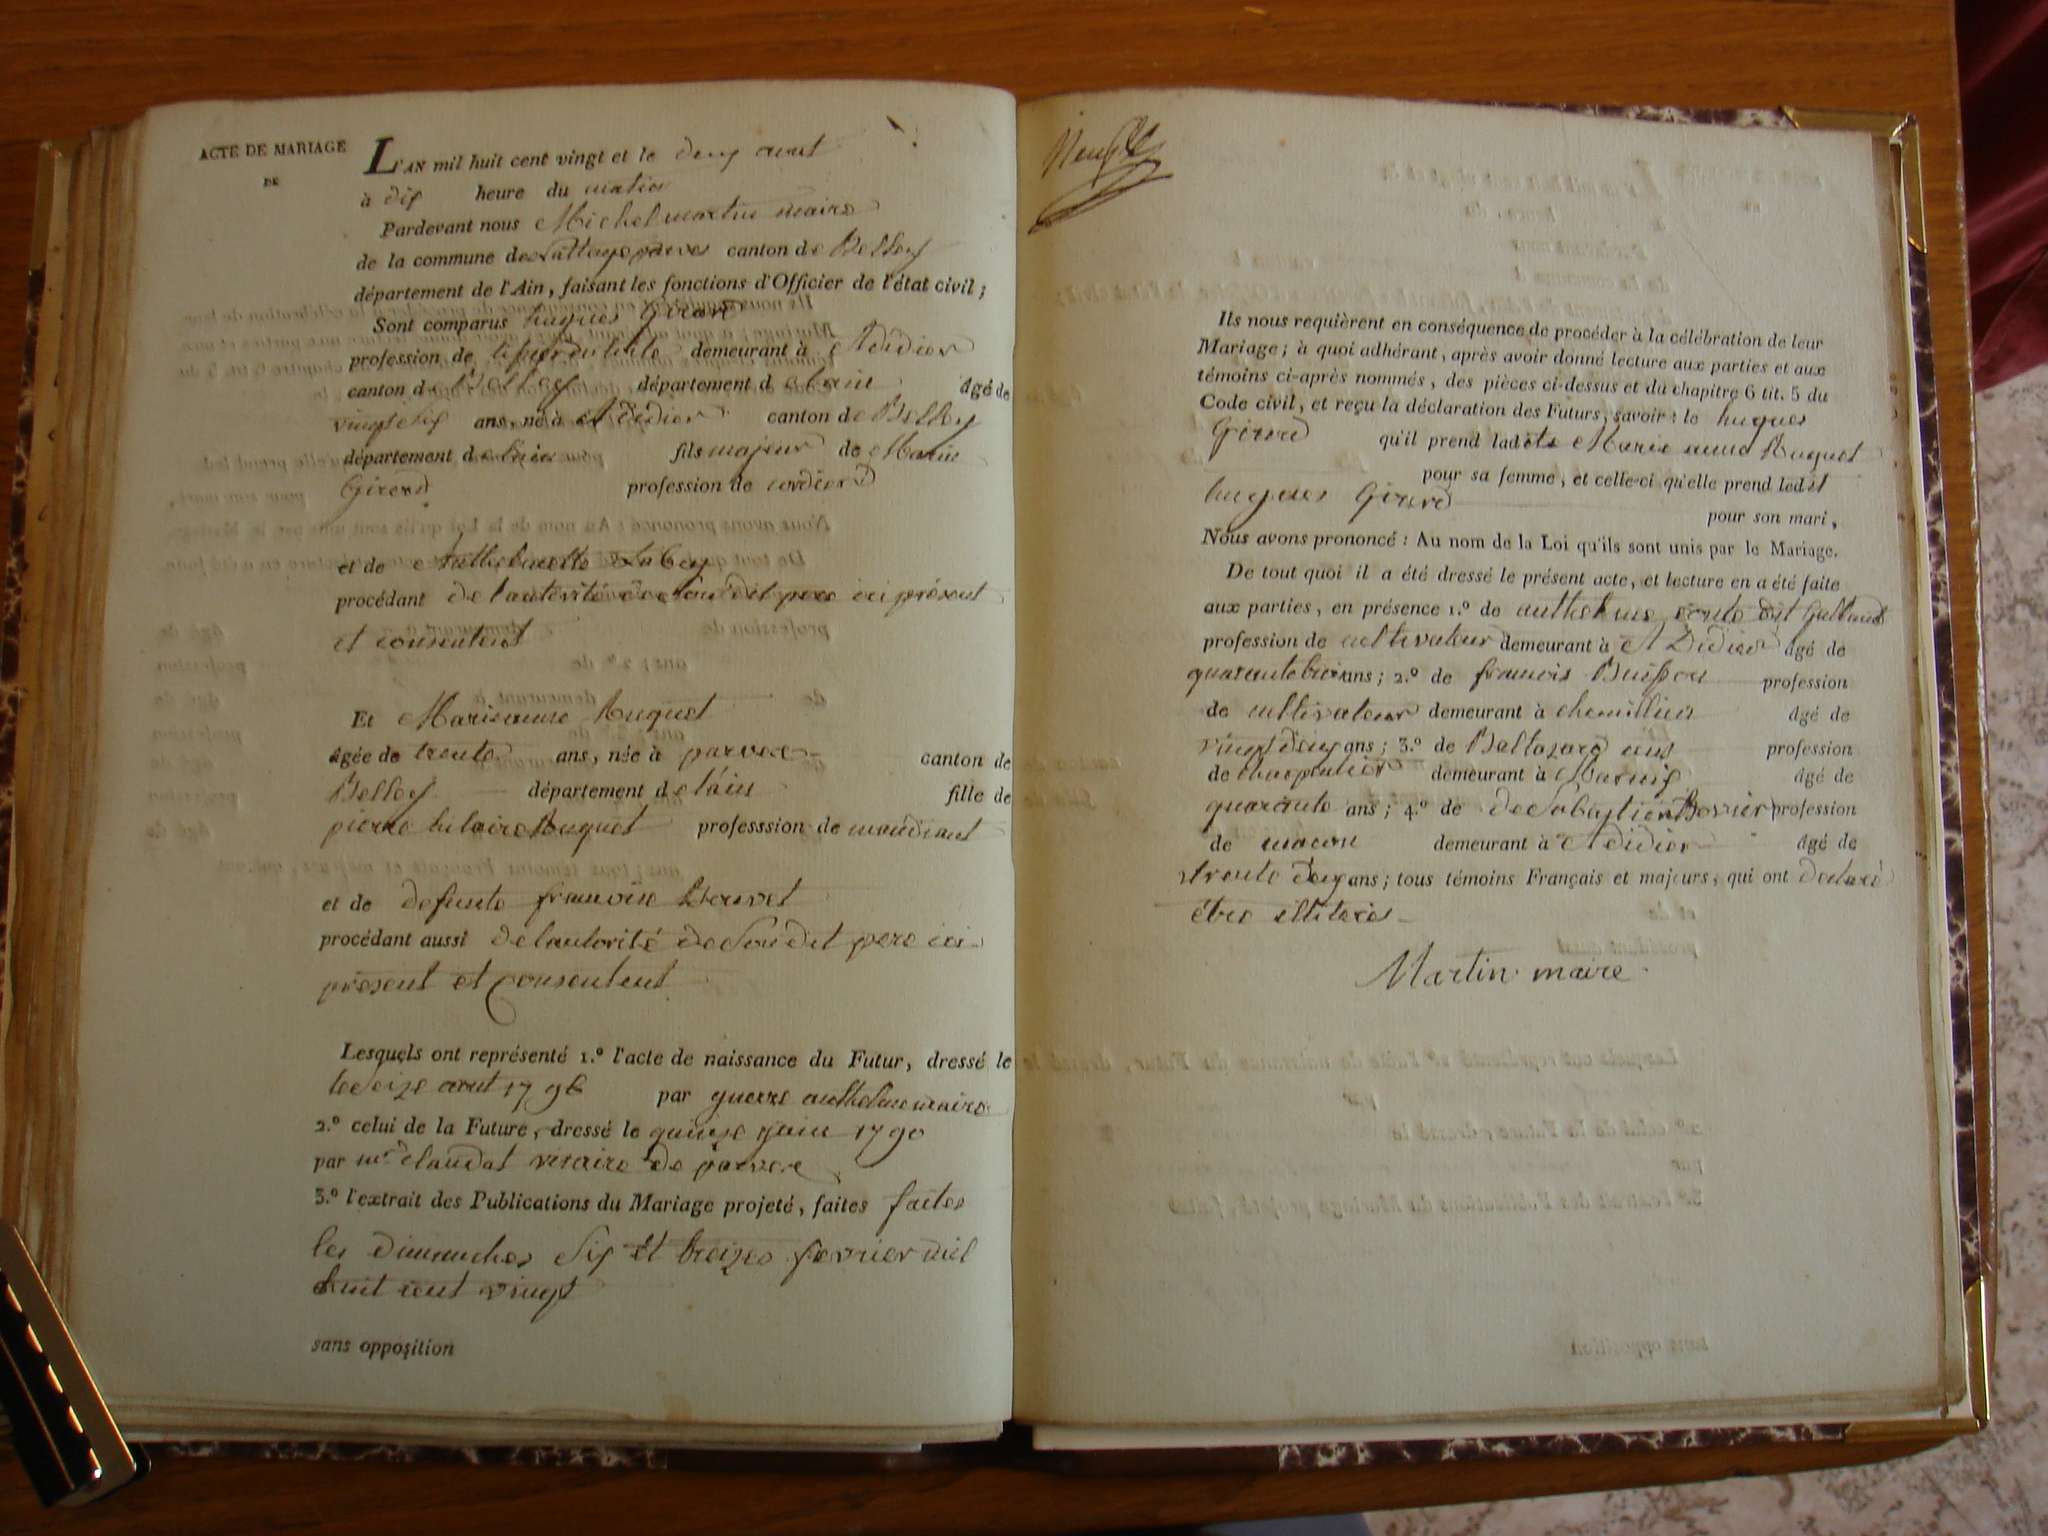 ACTE DE MARIAGE
DE
L'AN mil huit cent vingt et le deux aout
à dix heure du matin
Pardevant nous Michel martin maire
de la commune de canton de Belley
département de l'Ain, faisant les fonctions d'Officier de l'état civil;
Sont comparus hugues Girard
profession de demeurant à St Didier
canton de Belley département de lain âgé de
vingt six ans, né à St didier canton de Belley
département de lain fils majeur de
Girerd profession de
et de
procédant de lautorité de son dit pere ici présent
et consentent
Et Marieanne huguet
âgée de trente ans, née à parvex canton de
Belley département de láin fille de
pierre hilaire huguet professsion de mandiant
et de defunte
procédant aussi de lautorité de son dit pere ici
présent et consentent
Lesquels ont représenté 1.º l'acte de naissance du Futur, dressé le
le seize aout 1796 par guerre anthelme maire
2.º celui de la Future, dressé le quinze juin 1790
par mr claudat vicaire de parvex
3.º l'extrait des Publications du Mariage projeté, faites faites
les dimanches six et treizes fevrier mil
huit cent vingt
sans opposition
Ils nous requièrent en conséquence de procéder à la célébration de leur
Mariage; à quoi adhérant, après avoir donné lecture aux parties et aux
témoins ci-après nommés, des pièces ci-dessus et du chapitre 6 tit. 5 du
Code civil, et reçu la déclaration des Futurs, savoir: le hugues
Girerd qu'il prend ladte Marie anne huguet
pour sa femme, et celle-ci qu'elle prend ledit
hugues Girerd
pour son mari,
Nous avons prononcé: Au nom de la Loi qu'ils sont unis par le Mariage.
De tout quoi il a été dressé le présent acte, et lecture en a été faite
aux parties, en présence 1.º de anthelme dit
profession de cultivateur demeurant à St Didier âgé de
quarante trois ans; 2.º de francois Buisson profession
de cultivateur demeurant à chemillieu âgé de
vingt deux ans; 3.º de Baltazard profession
de charpentier demeurant à âgé de
quarante ans; 4.º de de Sebastien profession
de macon demeurant à St didier âgé de
trente deux ans; tous témoins Français et majeurs, qui ont declaré
étre
Martin maire